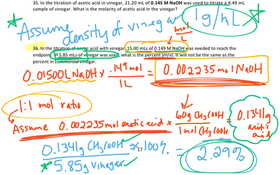 35. In the titration of acetic acid in vinegar, 21.20 mL of 0.145 M NaOH was used to titrate a 4.49 mL
sample of vinegar. What is the molarity of acetic acid in the vinegar?
* Assume density of vinegar 1g/mL *
36. In the titration of acetic acid with vinegar, 15.00 mL of 0.149 M NaOH was needed to reach the
endpoint. If 5.85 mL of vinegar was used, what is the percent (m/v), it will not be the same as the
percent in commercial vinegar.
0.01500L NaOH × .149 mol / 1L = 0.002235 mol NaOH
1:1 mol ratio
Assume 0.002235 mol acetic acid × 60g CH3COOH / 1 mol CH3COOH = 0.1341g acetic acid
0.1341g CH3COOH / 5.85g vinegar × 100% = 2.29%
*